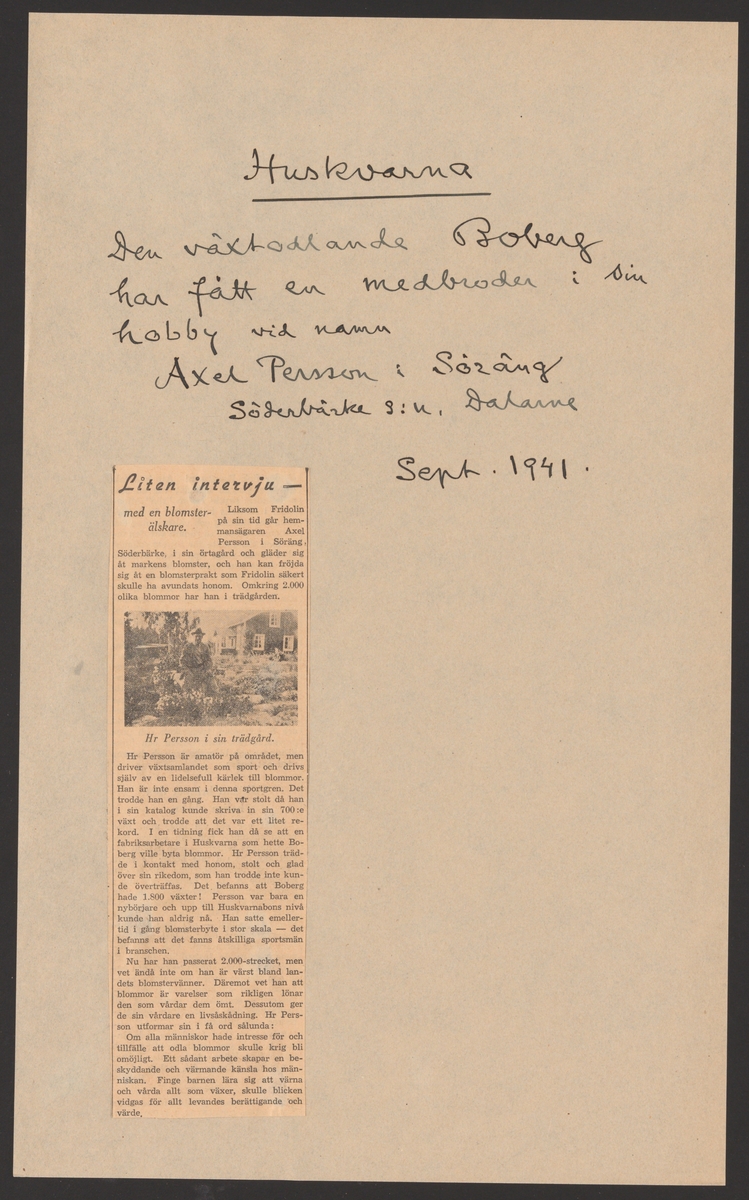 Huskvarna
Den växtodlande Boberg
har fått en medbroder i sin
hobby vid namn
Axel Persson i Söräng
Söderbärke s:n, Dalarne
Sept. 1941.
Liten intervju —
med en blomster-
älskare.
Liksom Fridolin
på sin tid går hem-
mansägaren Axel
Persson i Söräng,
Söderbärke, i sin örtagård och gläder sig
åt markens blomster, och han kan fröjda
sig åt en blomsterprakt som Fridolin säkert
skulle ha avundats honom. Omkring 2.000
olika blommor har han i trädgården.
Hr Persson i sin trädgård.
Hr Persson är amatör på området, men
driver växtsamlandet som sport och drivs
själv av en lidelsefull kärlek till blommor.
Han är inte ensam i denna sportgren. Det
trodde han en gång. Han var stolt då han
i sin katalog kunde skriva in sin 700:e
växt och trodde att det var ett litet re-
kord. I en tidning fick han då se att en
fabriksarbetare i Huskvarna som hette Bo-
berg ville byta blommor. Hr Persson träd-
de i kontakt med honom, stolt och glad
över sin rikedom, som han trodde inte kun-
de överträffas. Det befanns att Boberg
hade 1.800 växter! Persson var bara en
nybörjare och upp till Huskvarnabons nivå
kunde han aldrig nå. Han satte emeller-
tid i gång blomsterbyte i stor skala — det
befanns att det fanns åtskilliga sportsmän
i branschen.
Nu har han passerat 2.000-strecket, men
vet ändå inte om han är värst bland lan-
dets blomstervänner. Däremot vet han att
blommor är varelser som rikligen lönar
den som vårdar dem ömt. Dessutom ger
de sin vårdare en livsåskådning. Hr Pers-
son utformar sin i få ord sålunda:
Om alla människor hade intresse för och
tillfälle att odla blommor skulle krig bli
omöjligt. Ett sådant arbete skapar en be-
skyddande och värmande känsla hos män-
niskan. Finge barnen lära sig att värna
och vårda allt som växer, skulle blicken
vidgas för allt levandes berättigande och
värde.